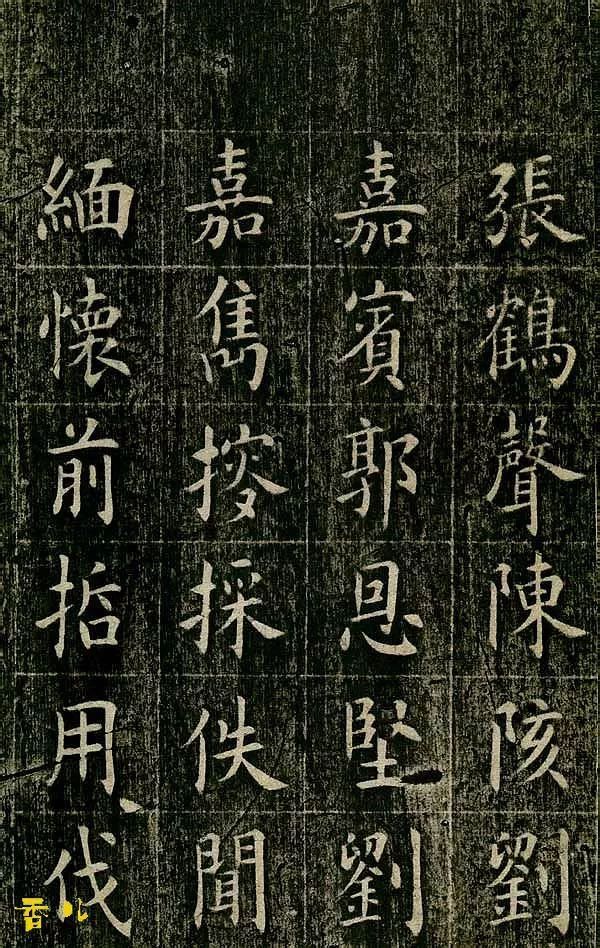 張鶴聲陳陔劉
嘉賓郭恩堅劉
嘉雋搜採佚聞
緬懷前哲用伐